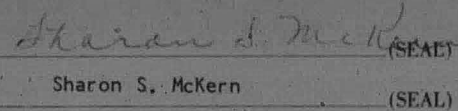 Sharon S. McKern (SEAL)
Sharon S. McKern
(SEAL)